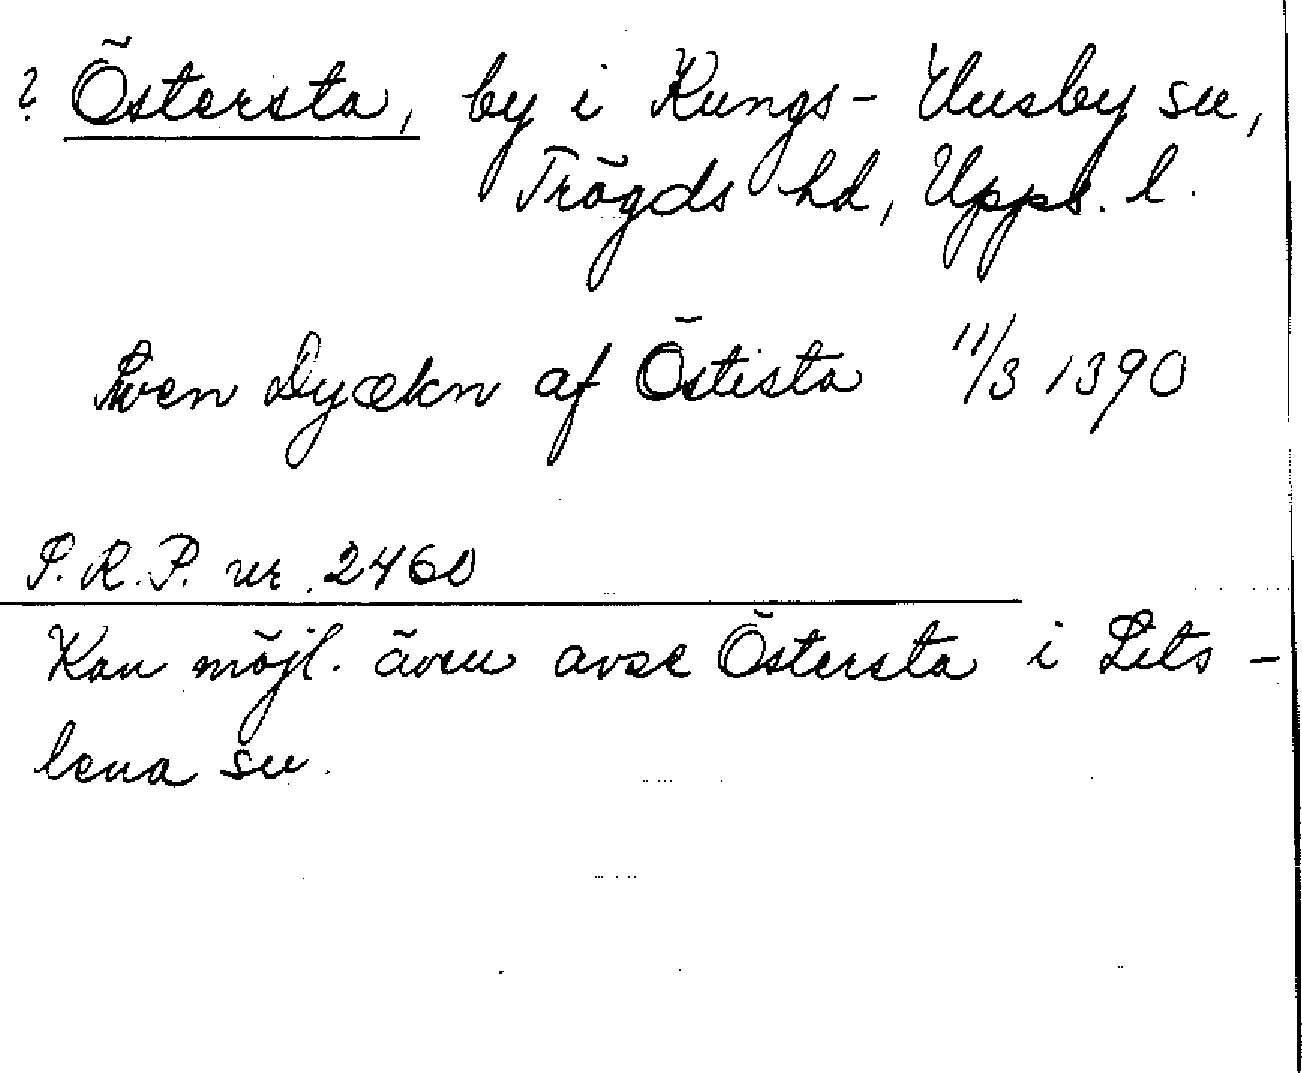 ? Östersta, by i Kungs-Husby sn,
Trögds hd, Upps. l.
Swen Dyækn af Östista 11/3 1390
S.R.P. nr. 2460
Kan möjl. även avse Östersta i Lits-
lena sn.